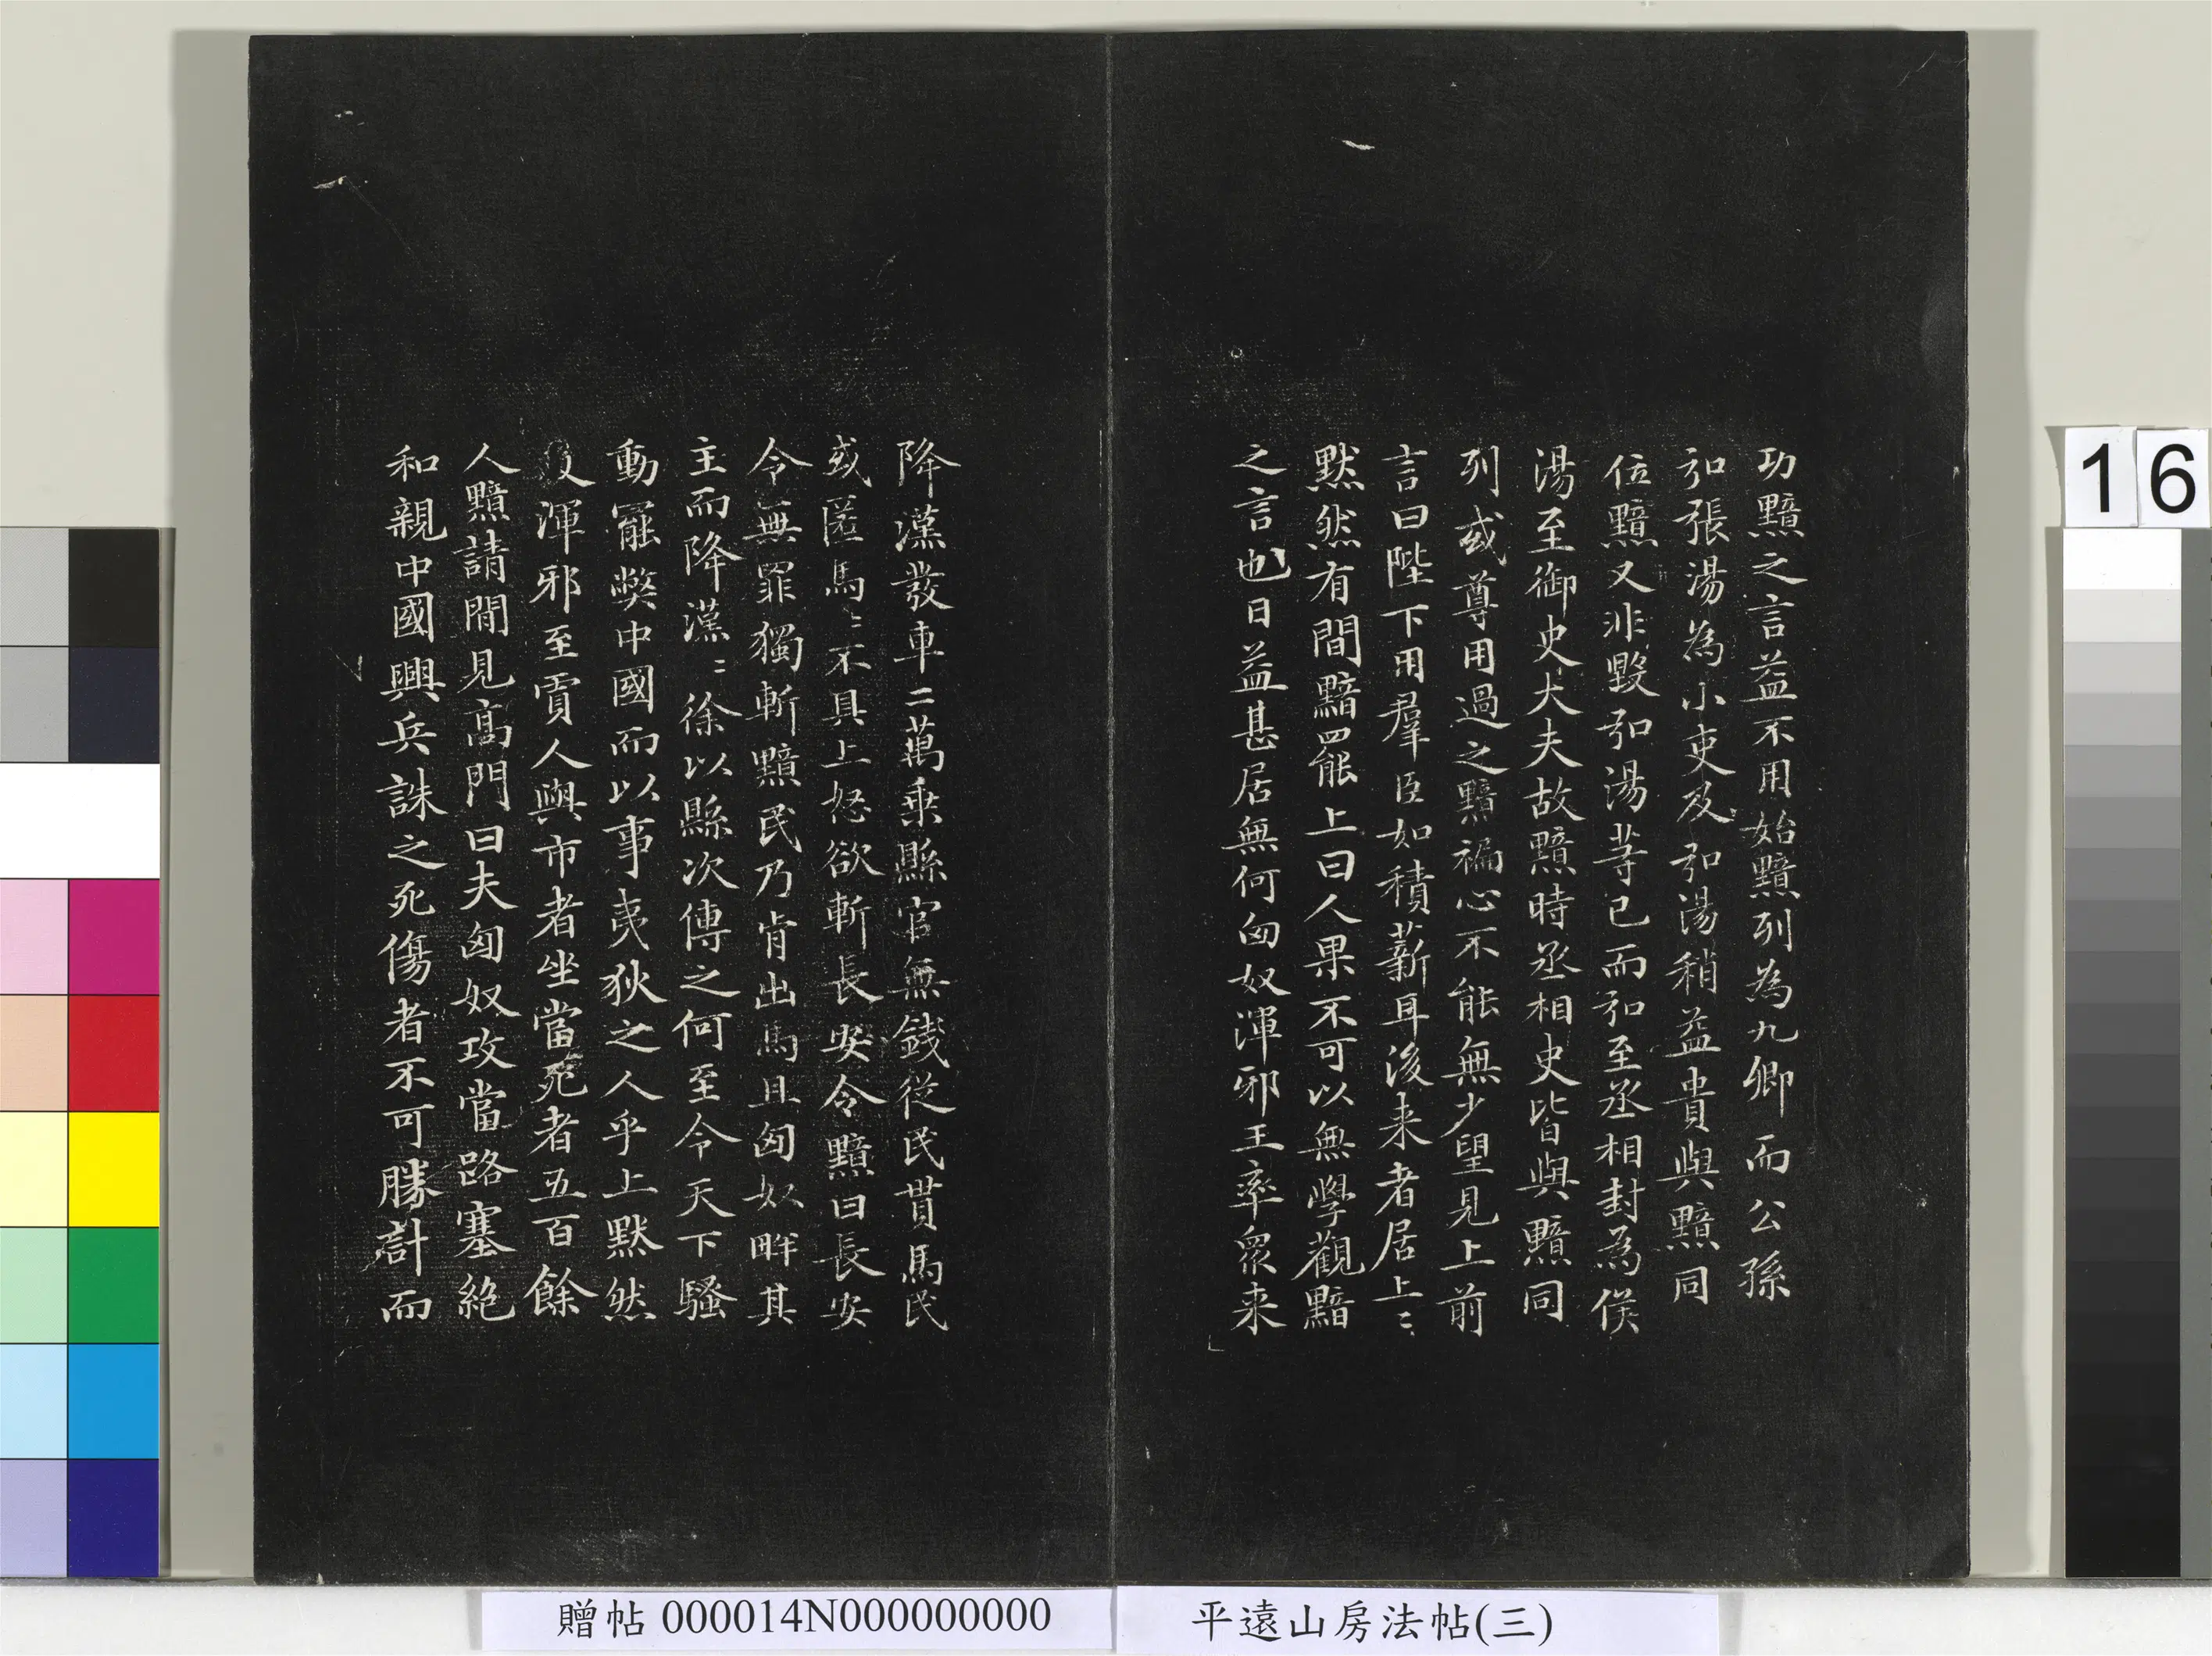 功黯之言益不用始黯列為九卿而公孫
弘張湯為小吏及弘湯稍益貴與黯同
位黯又非毀弘湯等已而弘至丞相封為侯
湯至御史大夫故黯時丞相史皆與黯同
列或尊用過之黯褊心不能無少望見上前
言曰陛下用羣臣如積薪耳後来者居上〻
黙然有間黯罷上曰人果不可以無學觀黯
之言也日益甚居無何匈奴渾邪王率眾来
降漢發車二萬乘縣官無錢從民貰馬民
或匿馬〻不具上怒欲斬長安令黯曰長安
令無罪獨斬黯民乃肯出馬且匈奴畔其
主而降漢〻徐以縣次傳之何至令天下騷
動罷弊中國而以事夷狄之人乎上黙然
及渾邪至賈人與市者坐當死者五百餘
人黯請間見高門曰夫匈奴攻當路塞絶
和親中國興兵誅之死傷者不可勝計而
16
贈帖 000014N000000000
平遠山房法帖(三)